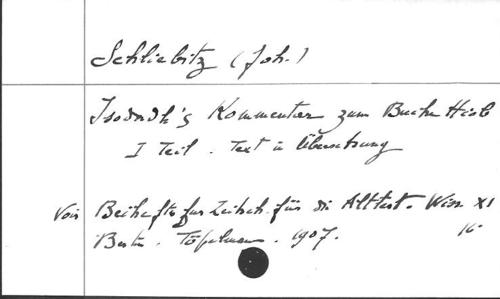 Schliebitz (Joh.)
Išodadh's Kommentar zum Buche Hiob
I Teil. Text u Übersetzung
Voir Beihefte zur Zeitsch. für die Alttest. Wiss XI
Berlin. Töpelmann. 1907. 16